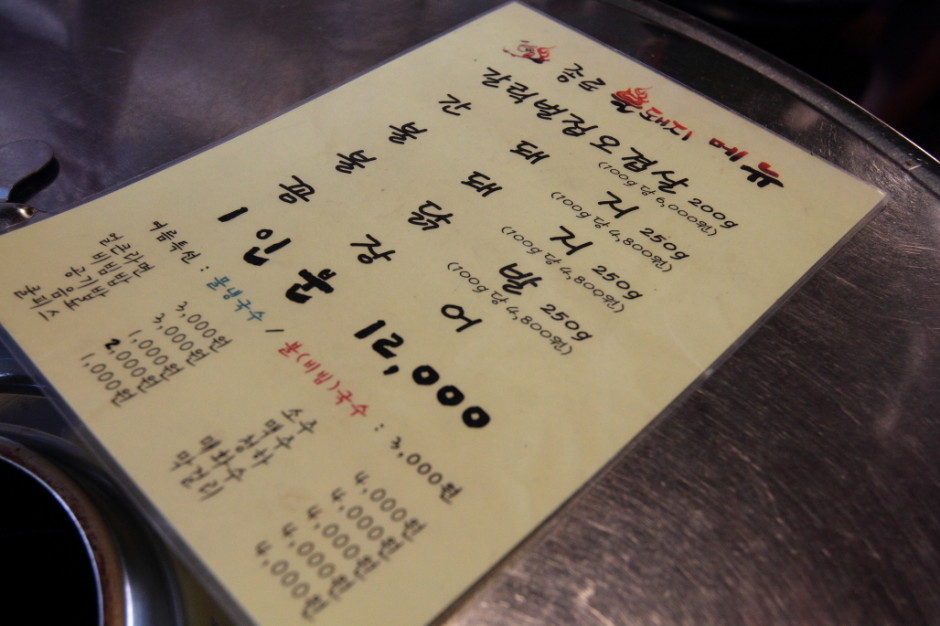 종로 불돼지 메뉴
오겹살 200g
(100g 당 6,000원)
돼 지 250g
(100g 당 4,800원)
불 돼 지 250g
(100g 당 4,800원)
불 닭 발 250g
(100g 당 4,800원)
곰 장 어
1인분 12,000
여름특선 : 물냉국수 / 불(비빔)국수 : 3,000원
열라면 3,000원 소주 4,000원
비빔밥 3,000원 맥주 4,000원
공기밥 1,000원 청하 4,000원
음료 2,000원 매화수 4,000원
쿨피스 1,000원 막걸리 4,000원